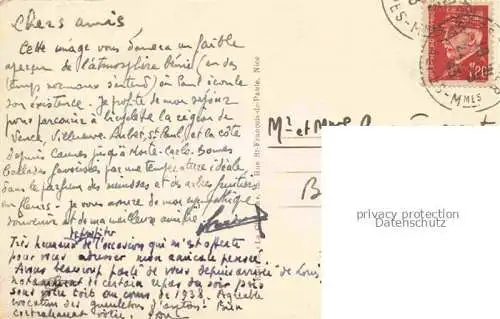 Chers amis
Cette image vous donnera un faible
aperçu de l'atmosphère bénie (en des
temps normaux s'entend) où Paul écoule
son existence. Je profite de mon séjour
pour parcourir à bicyclette la région de
Vence, Villeneuve Loubet, St Paul, et la côte
depuis Cannes jusqu'à Monte-Carlo. Bonnes
ballades favorisées par une température idéale
dans le parfum des mimosas et des arbres fruitiers
en fleurs. Je vous assure de mon sympathique
souvenir et de ma meilleure amitié.
Très heureux de l'occasion qui m'est offerte
pour vous adresser mon amicale pensée.
Avons beaucoup parlé de vous depuis arrivée de Louis
notamment de certain repas du soir pris
sous votre toit au cours de 1938. Agréable
évocation des gueuletons d'antan! Bien
cordialement vôtre. Paul
Rue St-François-de-Paule, Nice
Mr et Mme
B
privacy protection
Datenschutz
1F20
MMES